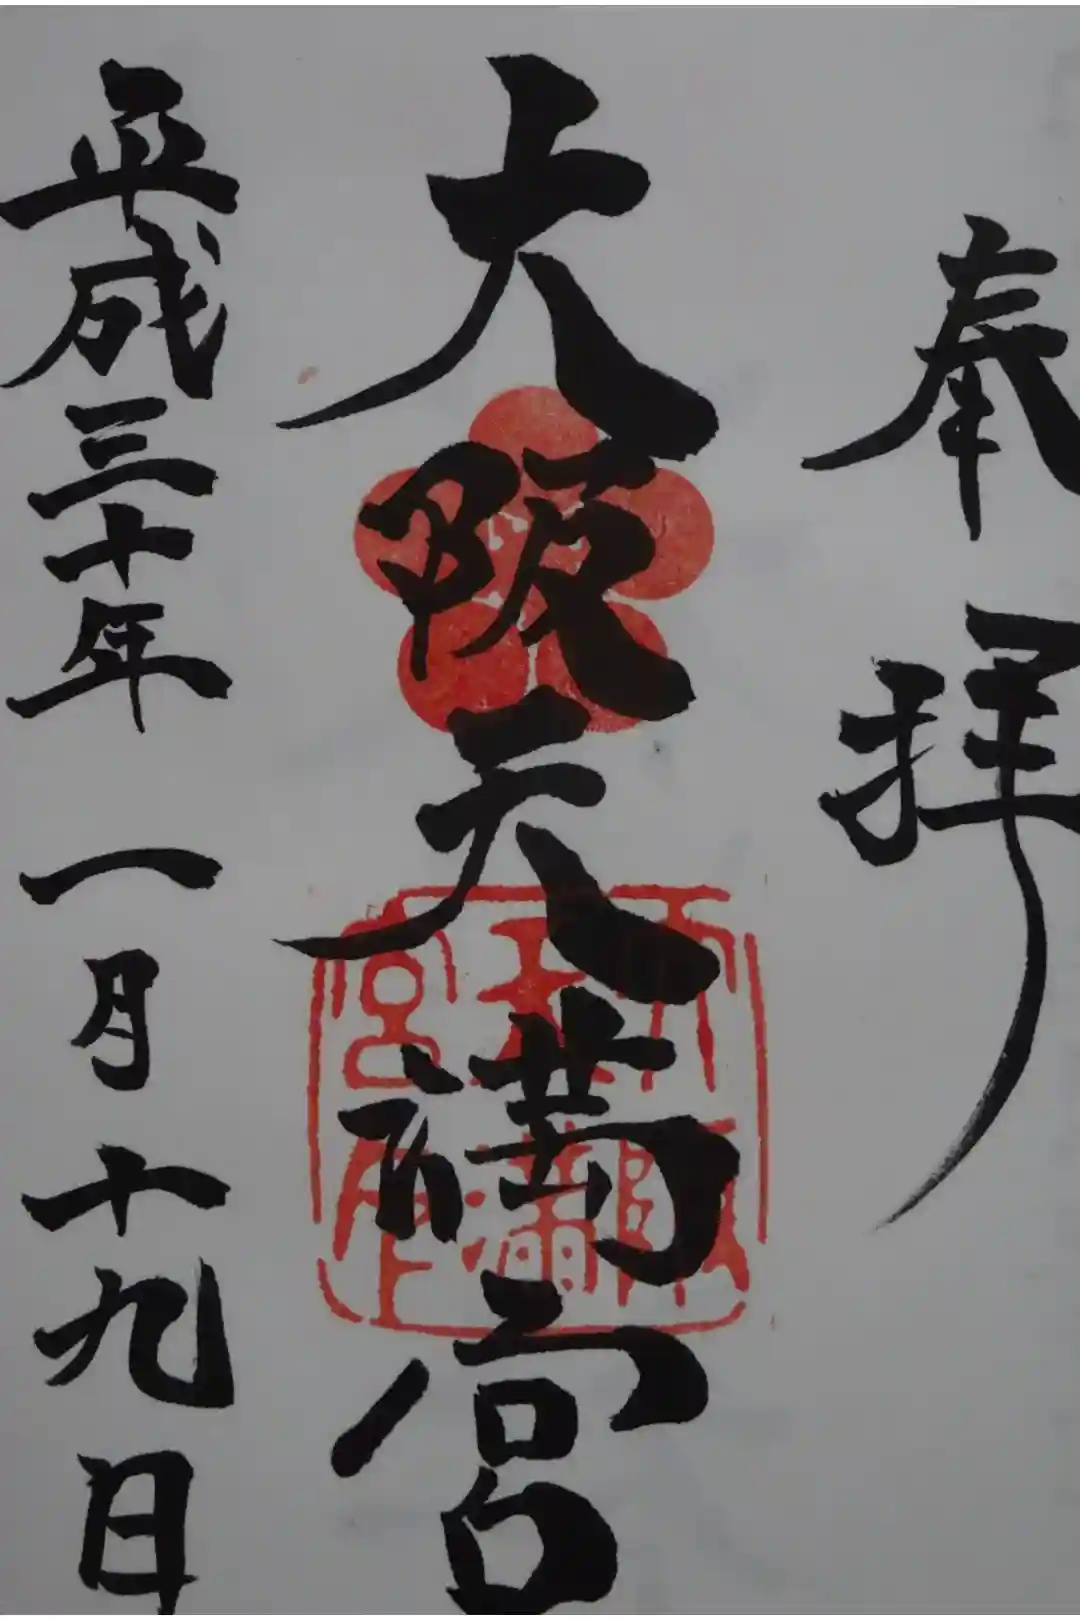 奉拝
大阪天満宮
平成三十年一月十九日
大阪天満宮之